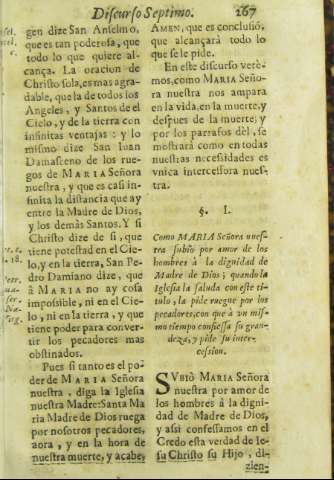 Discurso Septimo. 267
gen dize San Anselmo,
que es tan poderosa, que
todo lo que quiere al-
cança. La oracion de
Christo sola, es mas agra-
dable, que la de todos los
Angeles, y Santos de el
Cielo, y de la tierra con
infinitas ventajas: y lo
mismo dize San Iuan
Damasceno de los rue-
gos de MARIA Señora
nuestra, y que es casi in-
finita la distancia que ay
entre la Madre de Dios,
y los demàs Santos. Y si
Christo dize de si, que
tiene potestad en el Cie-
lo, y en la tierra, San Pe-
dro Damiano dize, que
à MARIA no ay cosa
impossible, ni en el Cie-
lo, ni en la tierra, y que
tiene poder para conver-
tir los pecadores mas
obstinados.
Pues si tanto es el po-
der de MARIA Señora
nuestra, diga la Iglesia
nuestra Madre: Santa Ma
ria Madre de Dios ruega
por nosotros pecadores,
aora, y en la hora de
nuestra muerte, y acabe,
AMEN, que es conclusiõ,
que alcançarà todo lo
que se le pide.
En este discurso verè-
mos, como MARIA Seño-
ra nuestra nos ampara
en la vida, en la muerte, y
despues de la muerte, y
por los parrafos dèl, se
mostrarà como en todas
nuestras necesidades es
vnica intercessora nues-
tra.
§. I.
Como MARIA Señora nues-
tra subiò por amor de los
hombres à la dignidad de
Madre de Dios; quando la
Iglesia la saluda con este ti-
tulo, la pide ruegue por los
pecadores, con que à vn mis-
mo tiempo confiessa su gran-
deza, y pide su inter-
cession.
SVBIÒ MARIA Señora
nuestra por amor de
los hombres à la digni-
dad de Madre de Dios,
y assi confessamos en el
Credo esta verdad de Ie-
su Christo su Hijo, di-
zien-